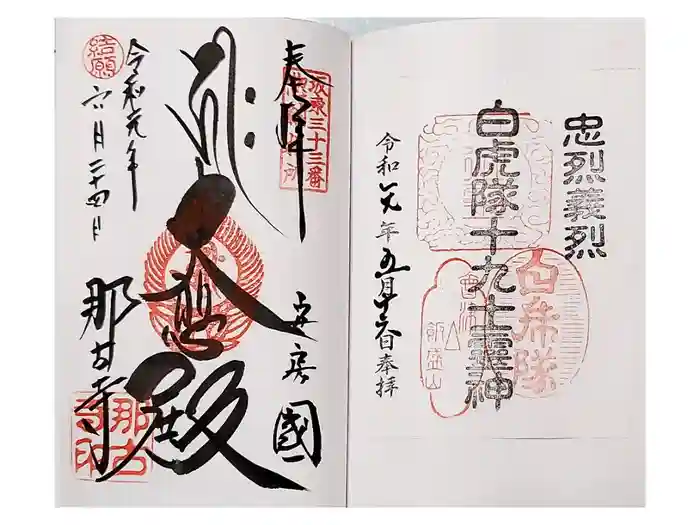 忠烈義烈
白虎隊十九士霊神
白虎隊
飯盛山
令和元年五月十六日奉拝
奉拝
坂東三十三番
安房國
大悲殿
那古寺
令和元年
六月二十四日
結願
那古寺印